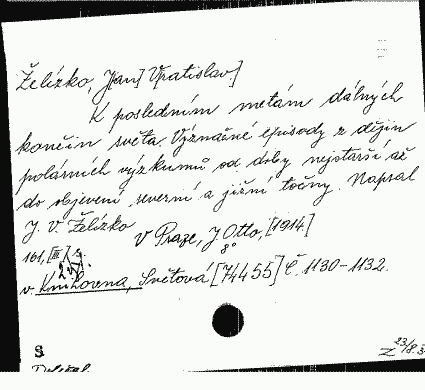 Želízko, J[an] V[ratislav.]
K posledním metám dálných
končin světa. Význačné episody z dějin
polárních výzkumů od doby nejstarší až
do objevení severní a jižní točny. Napsal
J. V. Želízko
V Praze, J. Otto, [1914]
8°
161, [III] s.
v. Knihovna, Světová [74455] č. 1130-1132.
S